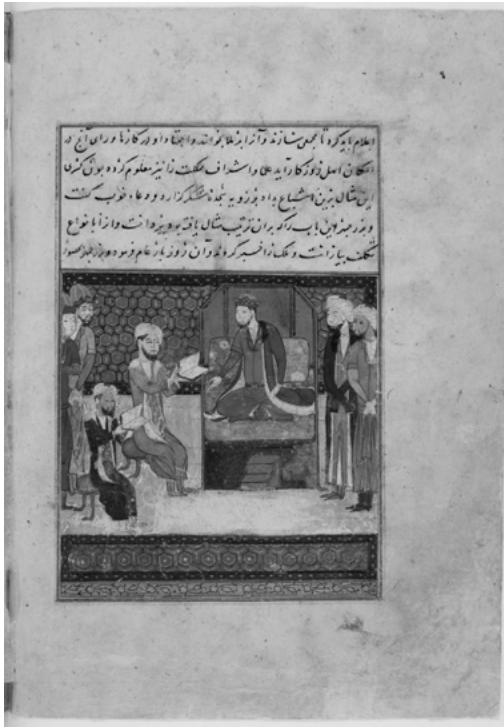 اعلام باید کرد تا مجمعی سازند و آنرا بر ملا بخوانند و اجتهاد او در کارها ورای آنچ در
امکان اهل روزکار آید علما و اشراف مملکت را نیز معلوم کردد چون کسری
این مثال برین اشباع بداد برزویه سجدهٔ شکر کزارد و دعاء خوب کفت
و بزرجمهر این باب را که بران ترتیب مثال یافته بود بپرداخت و آنرا بانواع
تکلف بیاراست و ملک را خبر کردند و آن روز بار عام بود و بزرجمهر بحضور